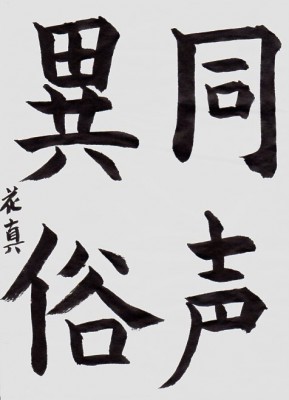 同声
異俗
花真